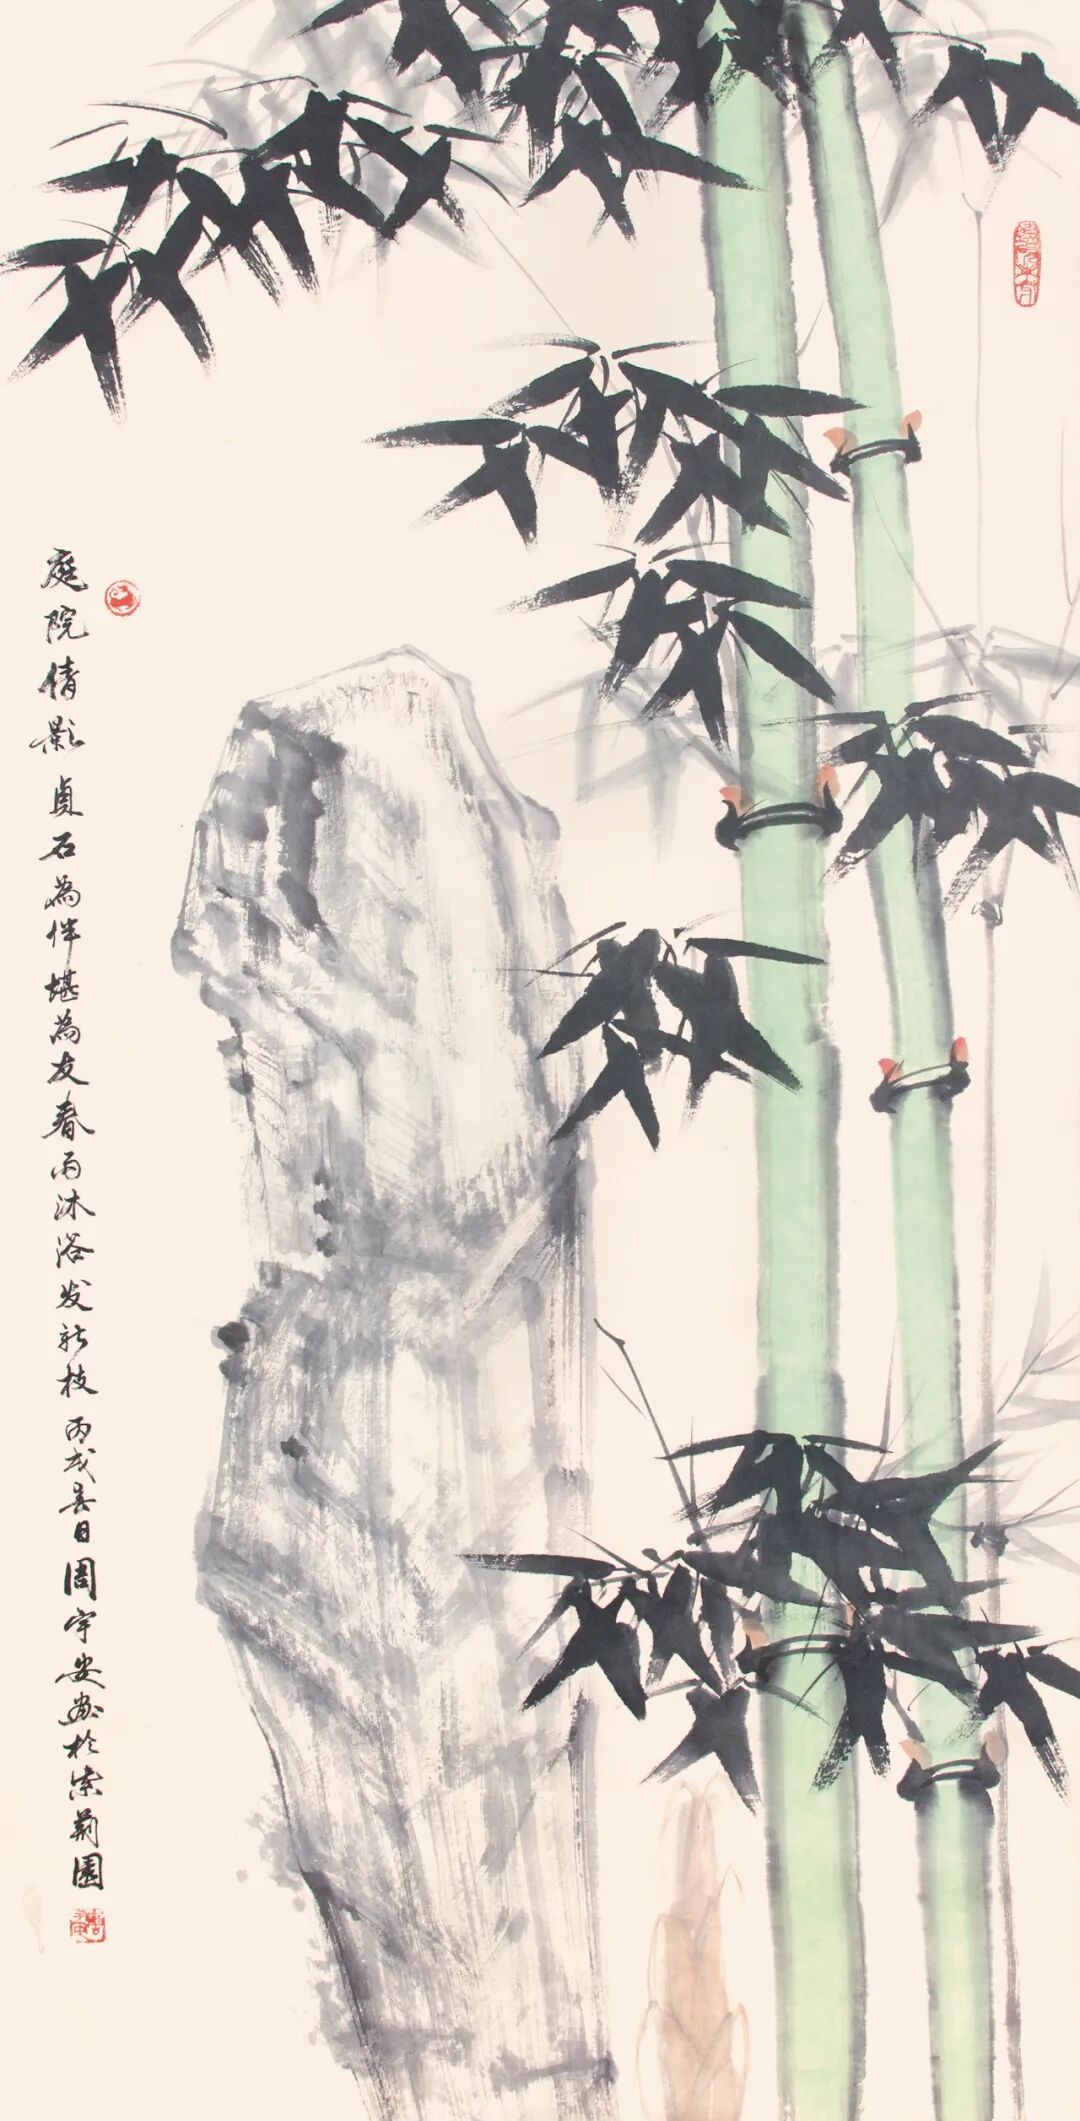 庭院倩影 貞石為伴堪為友春雨沐浴发新枝 丙戌春日周宇安画於紫荊園